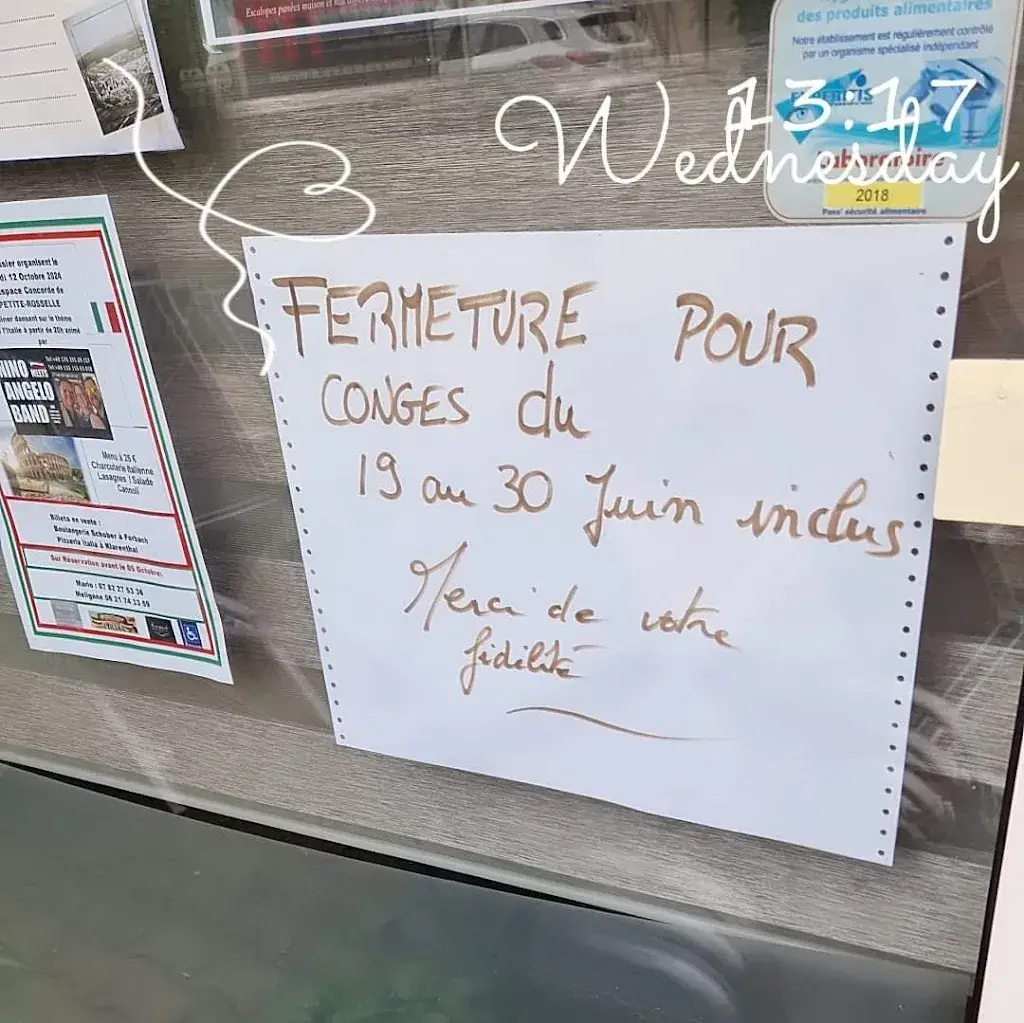 Escalopes panées maison et nos
des produits alimentaires
Notre établissement est régulièrement contrôlé
par un organisme spécialisé indépendant
13.17
Wednesday
Laboratoire
2018
Pass' sécurité alimentaire
FERMETURE POUR
CONGES du
19 au 30 Juin inclus
Merci de votre
fidélité
organisent le
12 Octobre 2024
Espace Concorde de
PETITE-ROSSELLE
dansant sur le thème
l'Italie à partir de 20h animé
par
NINO
ANGELO
BAND
Menu à 25 €
Charcuterie Italienne
Lasagnes / Salade
Cannoli
Billets en vente :
Boulangerie Schober à Forbach
Pizzeria Italia à Klarenthal
Sur Réservation avant le 05 Octobre:
Mario : 07 82 27 53 36